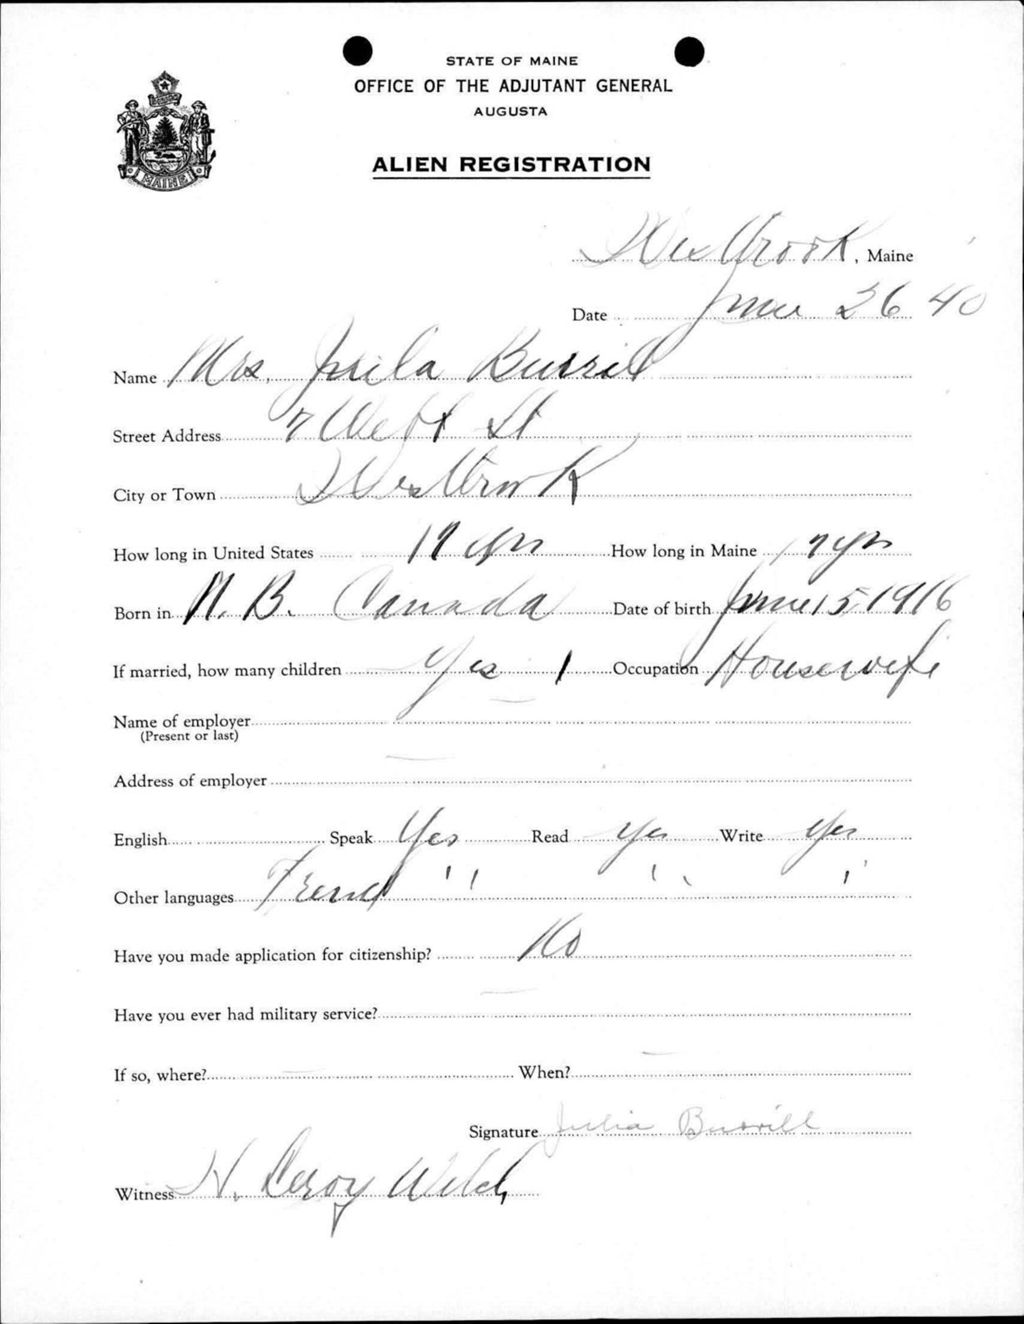 STATE OF MAINE
OFFICE OF THE ADJUTANT GENERAL
AUGUSTA
MAINE
ALIEN REGISTRATION
Westbrook, Maine
Date June 26 40
Name Mrs. Juila Burril
Street Address 7 Webb St
City or Town Westbrook
How long in United States 17 yrs How long in Maine 17 yrs
Born in N.B. Canada Date of birth June 15, 1916
If married, how many children Yes 1 Occupation Housewife
Name of employer
(Present or last)
Address of employer
English Speak Yes Read yes Write yes
Other languages French " " "
Have you made application for citizenship? No
Have you ever had military service?
If so, where? When?
Signature Julia Burrill
Witness H. Leroy Welch